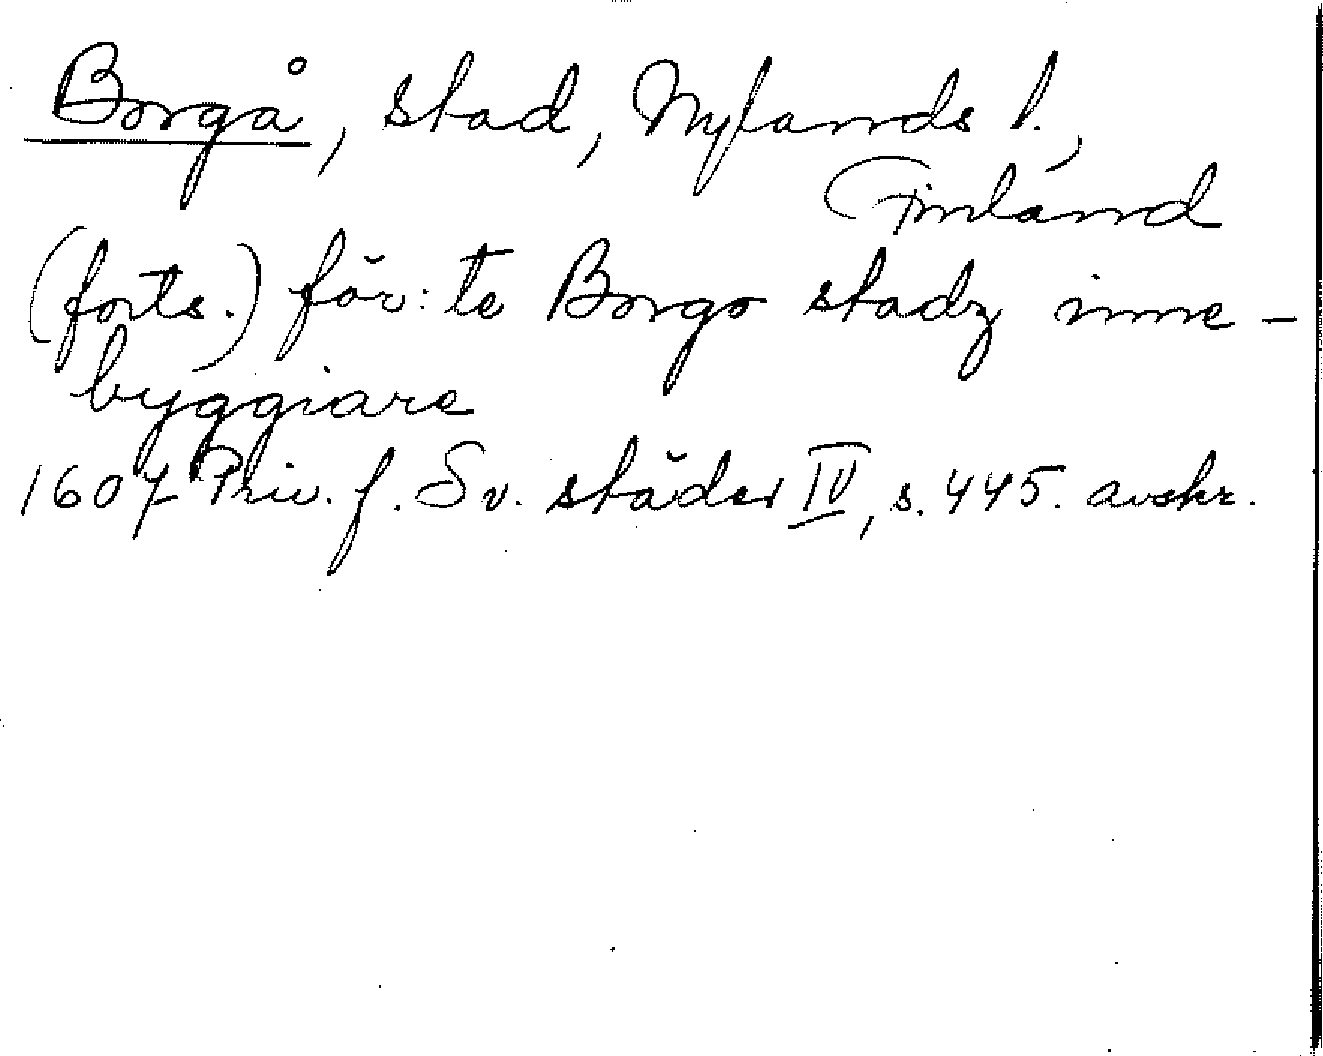 Borgå, stad, Nylands l.,
Finland
(forts.) för: te Borgo stadz inne-
byggiare
1607 Priv. f. Sv. städer IV, s. 445. avskr.